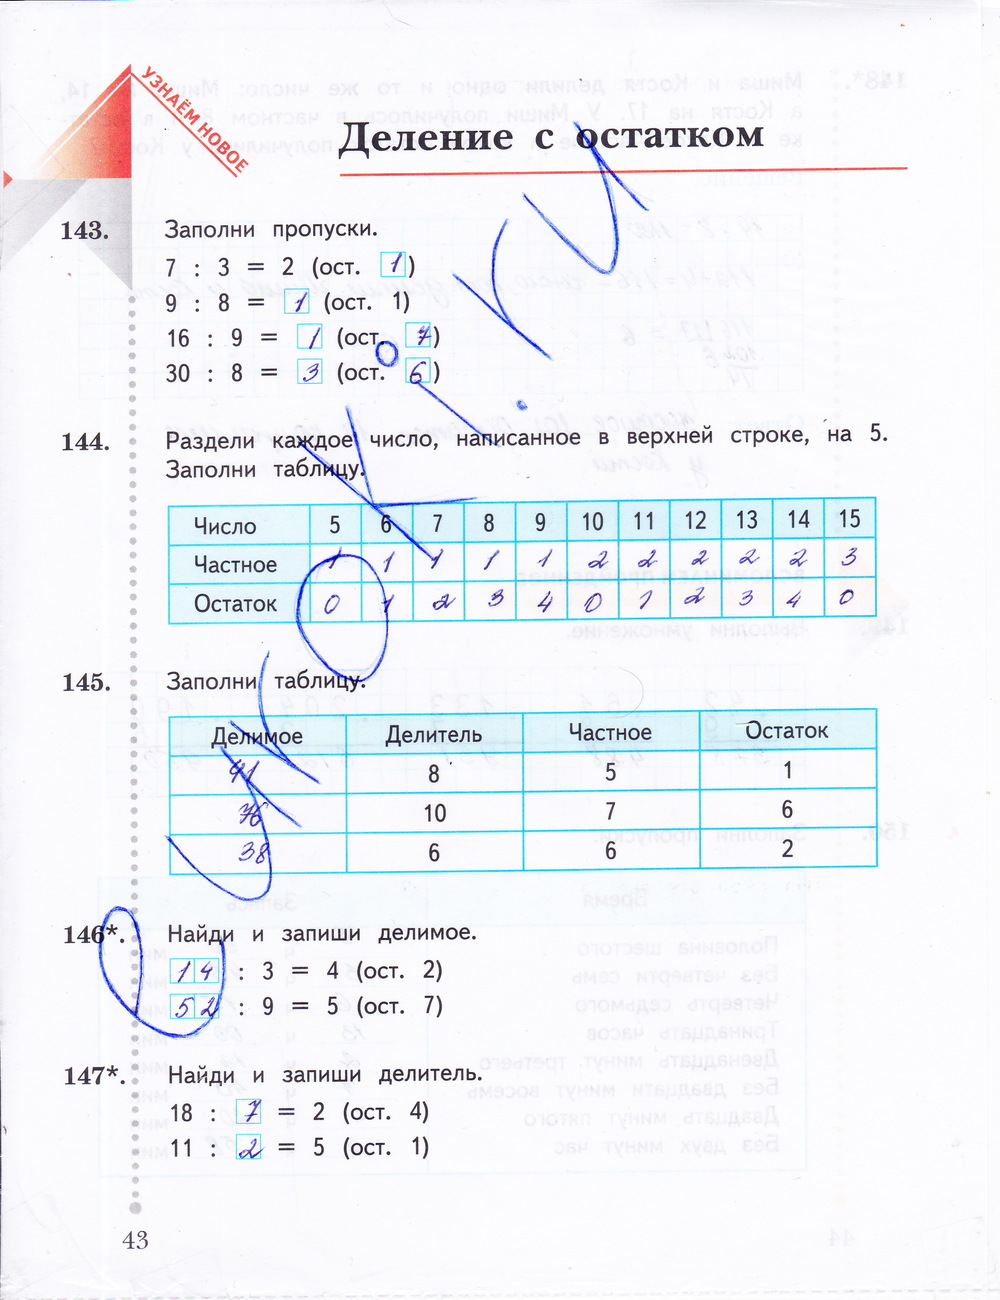 УЗНАЁМ НОВОЕ
Деление с остатком
143. Заполни пропуски.
7 : 3 = 2 (ост. 1)
9 : 8 = 1 (ост. 1)
16 : 9 = 1 (ост. 7)
30 : 8 = 3 (ост. 6)
144. Раздели каждое число, написанное в верхней строке, на 5.
Заполни таблицу.
Число 5 6 7 8 9 10 11 12 13 14 15
Частное 1 1 1 1 1 2 2 2 2 2 3
Остаток 0 1 2 3 4 0 1 2 3 4 0
145. Заполни таблицу.
Делимое Делитель Частное Остаток
41 8 5 1
76 10 7 6
38 6 6 2
146*. Найди и запиши делимое.
14 : 3 = 4 (ост. 2)
52 : 9 = 5 (ост. 7)
147*. Найди и запиши делитель.
18 : 7 = 2 (ост. 4)
11 : 2 = 5 (ост. 1)
43